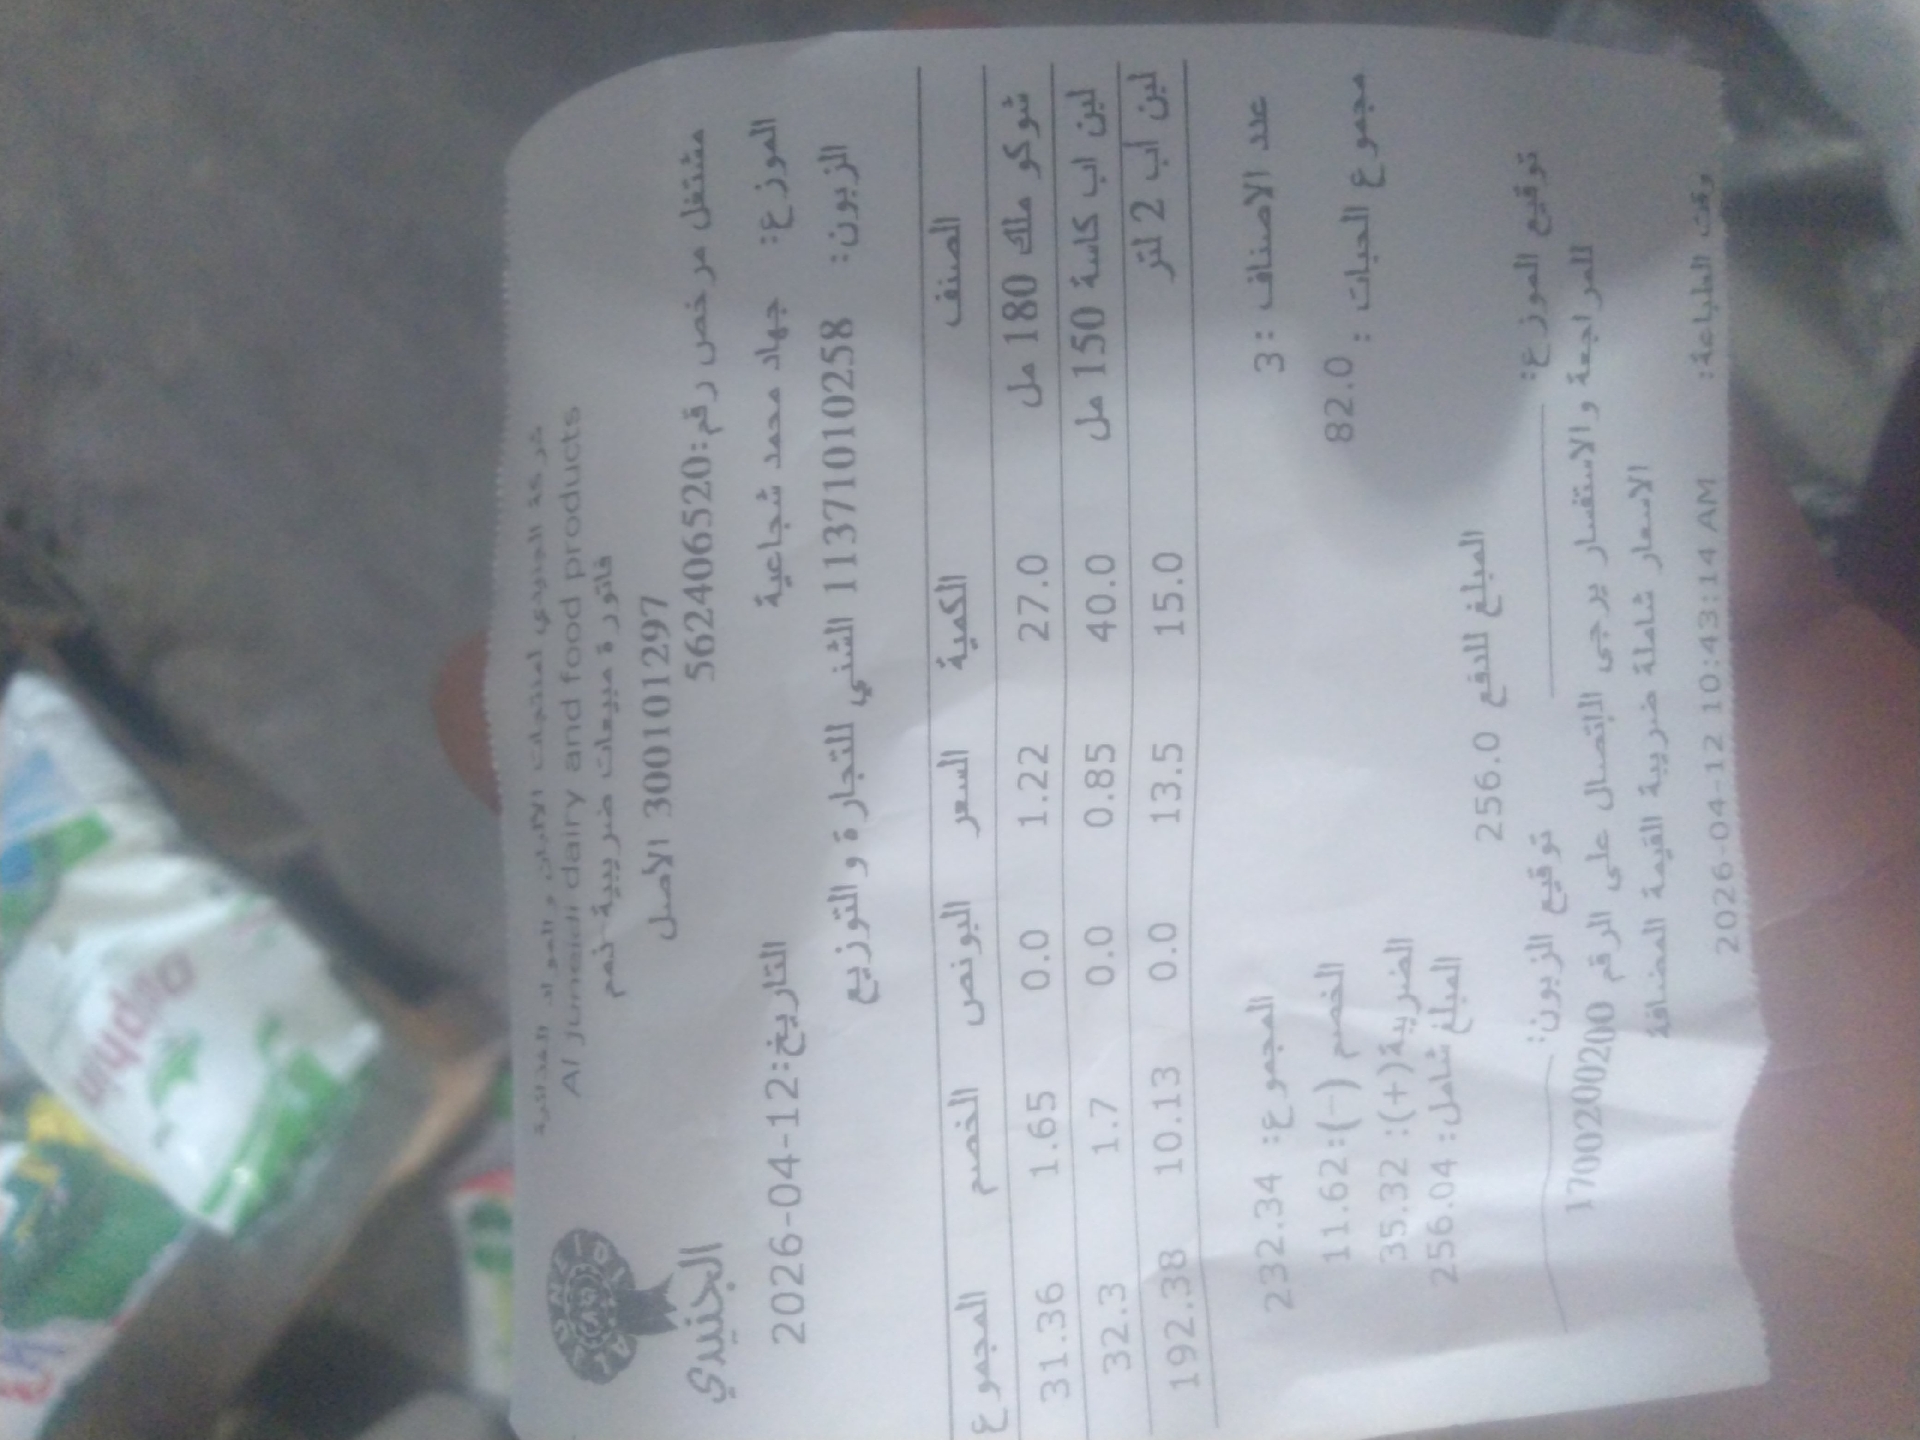 شركة الجنيدي لمنتجات الألبان والمواد الغذائية
Al Juneidi dairy and food products
فاتورة مبيعات ضريبية-نعم
300101101297 الأصل
الجنيدي
مشتغل مرخص رقم:562406520
الموزع: جهاد محمد شجاعية
التاريخ:2026-04-12
الزبون: 1137101010258 الشني للتجارة والتوزيع
الصنف الكمية السعر البونص الخصم المجموع
شوكو ملك 180 مل 27.0 1.22 0.0 1.65 31.36
لبن اب كاسة 150 مل 40.0 0.85 0.0 1.7 32.3
لبن اب 2 لتر 15.0 13.5 0.0 10.13 192.38
عدد الاصناف : 3
المجموع: 232.34
مجموع الحبات : 82.0
الخصم (-):11.62
الضريبة(+): 35.32
المبلغ شامل: 256.04
المبلغ للدفع 256.0
توقيع الموزع:
توقيع الزبون:
للمراجعة والاستفسار يرجى الاتصال على الرقم 1700200200
الاسعار شاملة ضريبة القيمة المضافة
وقت الطباعة: 2026-04-12 10:43:14 AM